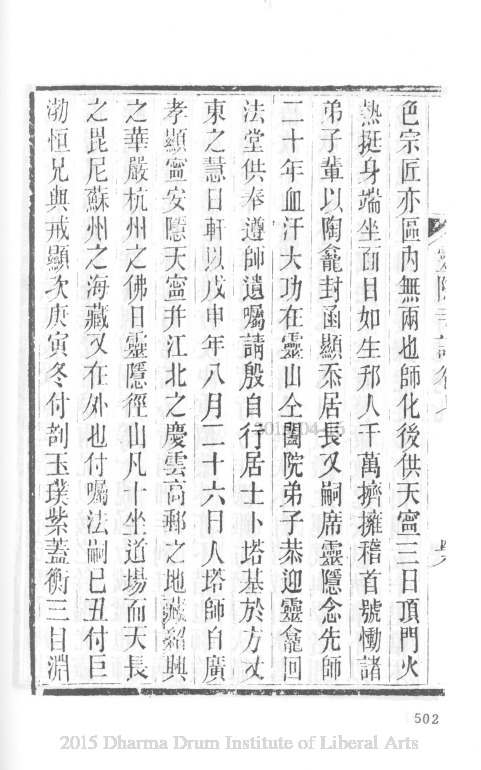 色宗匠亦區內無兩也師化後供天寗三日頂門火
熱挺身端坐面目如生邦人千萬擠擁稽首號慟諸
弟子輩以陶龕封函顯忝居長又嗣席靈隱念先師
二十年血汗大功在靈山仝闔院弟子恭迎靈龕回
法堂供奉遵師遺囑請殷自行居士卜塔基於方丈
東之慧日軒以戊申年八月二十六日入塔師自廣
孝顯寗安隱天寗幷江北之慶雲高郵之地藏紹興
之華嚴杭州之佛日靈隱徑山凡十坐道場而天長
之毘尼蘇州之海藏又在外也付囑法嗣已丑付巨
渤恒兄與戒顯次庚寅冬付剖玉璞紫蓋衡三目淵
502
2015 Dharma Drum Institute of Liberal Arts